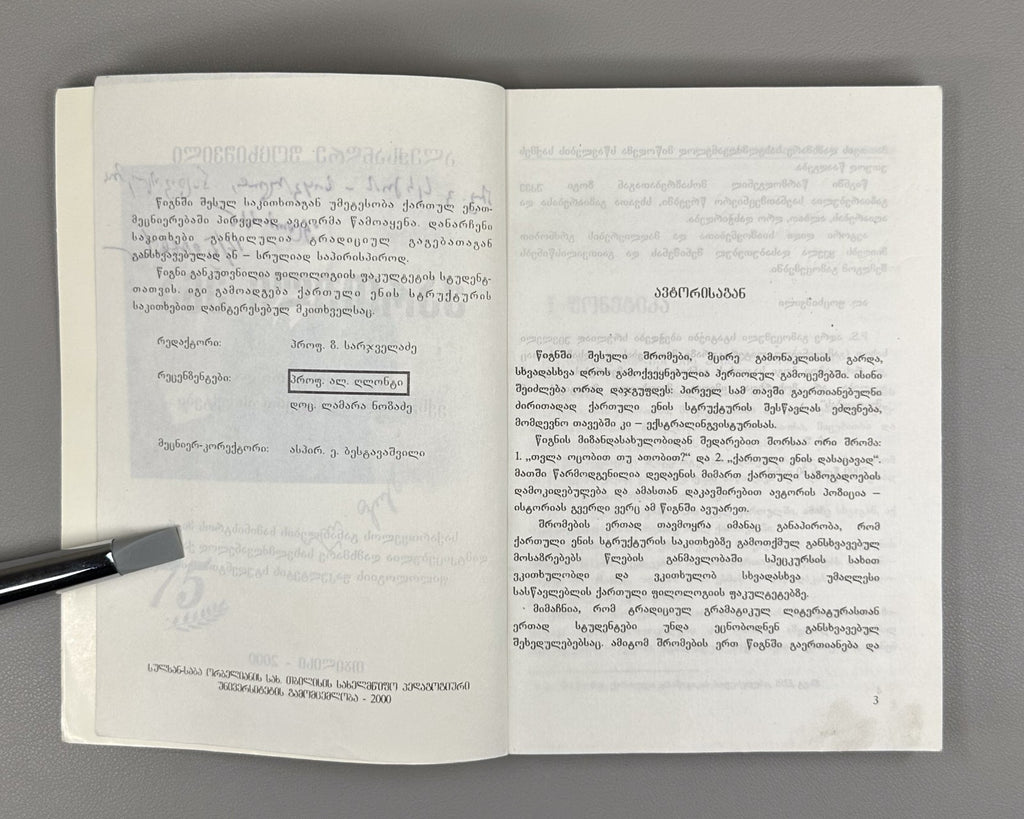 წიგნში შესულ საკითხთაგან უმეტესობა ქართულ ენათ-
მეცნიერებაში პირველად ავტორმა წამოაყენა. დანარჩენი
საკითხები განხილულია ტრადიციულ გაგებათაგან
განსხვავებულად ან – სრულიად საპირისპიროდ.
წიგნი განკუთვნილია ფილოლოგიის ფაკულტეტის სტუდენტ-
თათვის. იგი გამოადგება ქართული ენის სტრუქტურის
საკითხებით დაინტერესებულ მკითხველსაც.
რედაქტორი: პროფ. ზ. სარჯველაძე
რეცენზენტები: პროფ. ალ. ღლონტი
დოც. ლამარა ნოზაძე
მეცნიერ-კორექტორი: ასპირ. ე. ბესტავაშვილი
სულხან-საბა ორბელიანის სახ. თბილისის სახელმწიფო პედაგოგიური
უნივერსიტეტის გამომცემლობა - 2000
ავტორისაგან
წიგნში შესული შრომები, მცირე გამონაკლისის გარდა,
სხვადასხვა დროს გამოქვეყნებულია პერიოდულ გამოცემებში. ისინი
შეიძლება ორად დაჯგუფდეს: პირველ სამ თავში გაერთიანებულნი
ძირითადად ქართული ენის სტრუქტურის შესწავლას ეძღვნება,
მომდევნო თავებში კი – ექსტრალინგვისტურისას.
წიგნის მიზანდასახულობიდან შედარებით შორსაა ორი შრომა:
1. „თვლა ოცობით თუ ათობით?“ და 2. „ქართული ენის დასაცავად“.
მათში წარმოდგენილია დედაენის მიმართ ქართული საზოგადოების
დამოკიდებულება და ამასთან დაკავშირებით ავტორის პოზიცია –
ისტორიას გვერდი ვერც ამ წიგნში ავუარეთ.
შრომების ერთად თავმოყრა იმანაც განაპირობა, რომ
ქართული ენის სტრუქტურის საკითხებზე გამოთქმულ განსხვავებულ
მოსაზრებებს წლების განმავლობაში სპეცკურსის სახით
ვკითხულობდი და ვკითხულობ სხვადასხვა უმაღლესი
სასწავლებლის ქართული ფილოლოგიის ფაკულტეტებზე.
მიმაჩნია, რომ ტრადიციულ გრამატიკულ ლიტერატურასთან
ერთად სტუდენტები უნდა ეცნობოდნენ განსხვავებულ
შეხედულებებსაც. ამიტომ შრომების ერთ წიგნში გაერთიანება და
3